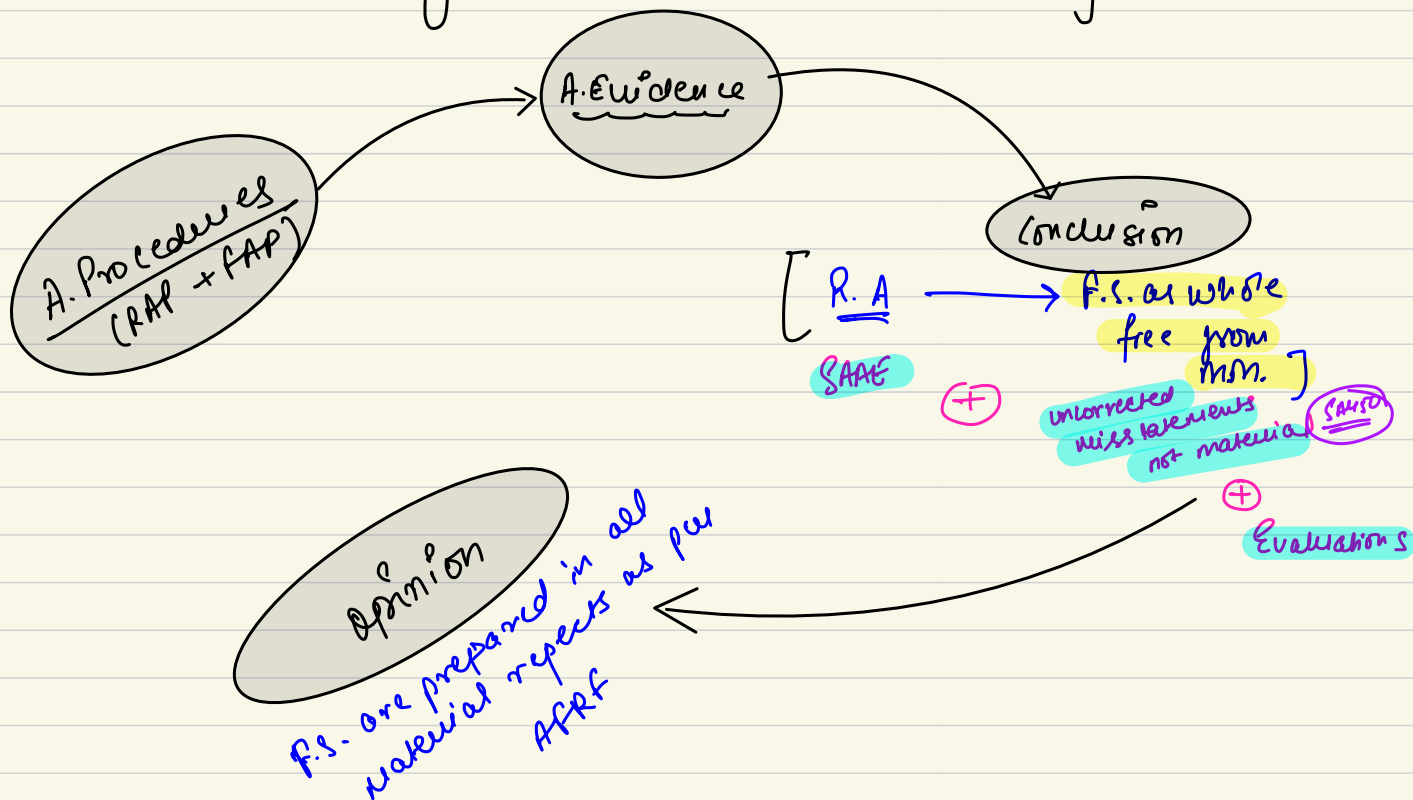 A. Evidence
A. Procedures
(RAP + FAP)
Conclusion
[ R.A → F.S. as whole
free from
MM. ]
SAAE
+
uncorrected
misstatements
not material
+
Evaluations
opinion
F.S. are prepared in all
Material repects as per
AFRF